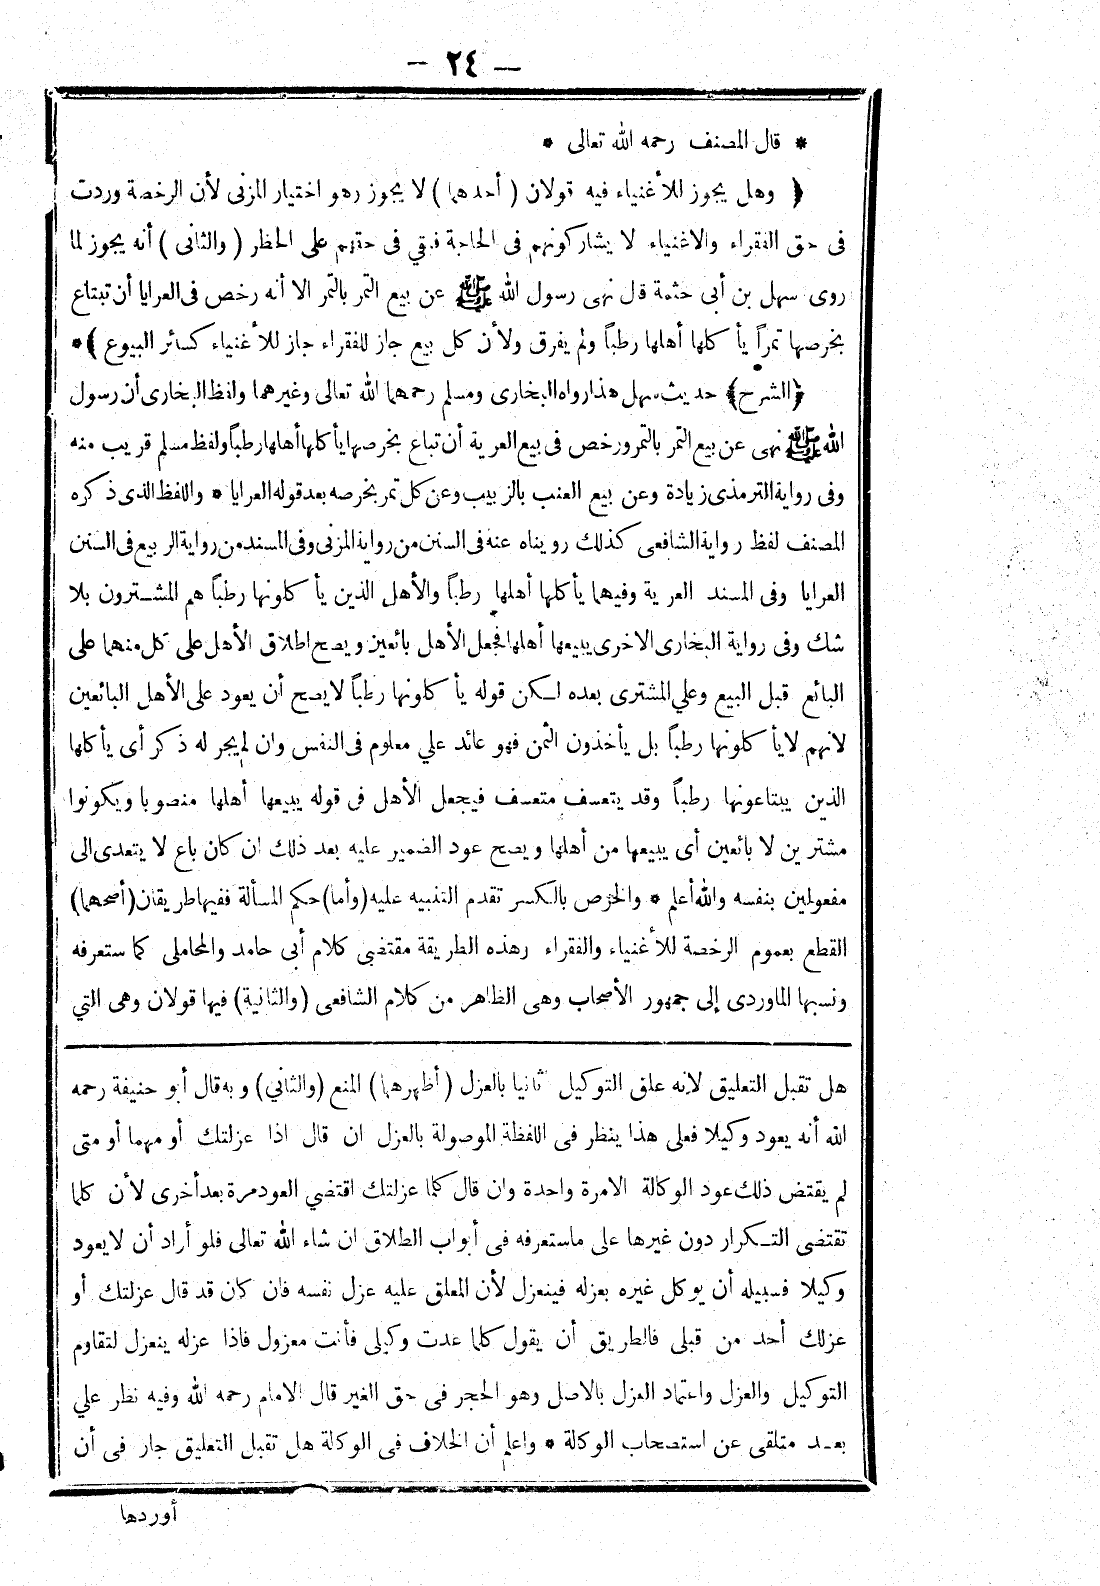 — ٢٤ —
* قال المصنف رحمه الله تعالى *
﴿ وهل يجوز للأغنياء فيه قولان ( أحدهما ) لا يجوز وهو اختيار المزنى لأن الرخصة وردت
فى حق الفقراء والاغنياء لا يشاركونهم فى الحاجة فبقي فى حقهم على الحظر ( والثانى ) أنه يجوز لما
روى سهل بن أبى حثمة قال نهى رسول الله ﷺ عن بيع التمر بالتمر الا أنه رخص فى العرايا أن تبتاع
بخرصها تمراً يأكلها أهلها رطباً ولم يفرق ولأن كل بيع جاز للفقراء جاز للأغنياء كسائر البيوع ﴾*
﴿الشرح﴾ حديث سهل هذا رواه البخارى ومسلم رحمهما الله تعالى وغيرهما ولفظ البخارى أن رسول
الله ﷺ نهى عن بيع التمر بالتمر ورخص فى بيع العرية أن تباع بخرصها يأكلها أهلها رطباً ولفظ مسلم قريب منه
وفى رواية الترمذى زيادة وعن بيع العنب بالزبيب وعن كل تمر بخرصه بعد قوله العرايا * واللفظ الذى ذكره
المصنف لفظ رواية الشافعى كذلك رويناه عنه فى السنن من رواية المزنى وفى المسند من رواية الربيع فى السنن
العرايا وفى المسند العرية وفيهما يأكلها أهلها رطباً والأهل الذين يأكلونها رطباً هم المشترون بلا
شك وفى رواية البخارى الاخرى يبيعها أهلها فجعل الأهل بائعين ويصح اطلاق الأهل على كل منهما على
البائع قبل البيع وعلي المشترى بعده لكن قوله يأكلونها رطباً لا يصح أن يعود على الأهل البائعين
لانهم لا يأكلونها رطباً بل يأخذون الثمن فهو عائد علي معلوم فى النفس وان لم يجر له ذكر أى يأكلها
الذين يبتاعونها رطباً وقد يتعسف متعسف فيجعل الأهل فى قوله يبيعها أهلها منصوبا ويكونوا
مشترين لا بائعين أى يبيعها من أهلها ويصح عود الضمير عليه بعد ذلك ان كان باع لا يتعدى الى
مفعولين بنفسه والله أعلم * والخرص بالكسر تقدم التنبيه عليه (وأما) حكم المسألة ففيها طريقان (أصحهما)
القطع بعموم الرخصة للأغنياء والفقراء وهذه الطريقة مقتضى كلام أبى حامد والمحاملى كما ستعرفه
ونسبها الماوردى إلى جمهور الأصحاب وهى الظاهر من كلام الشافعى (والثانية) فيها قولان وهى التي
هل تقبل التعليق لانه علق التوكيل ثانيا بالعزل ( أظهرهما ) المنع (والثاني) وبه قال أبو حنيفة رحمه
الله أنه يعود وكيلا فعلى هذا ينظر فى اللفظة الموصولة بالعزل ان قال اذا عزلتك أو مهما أو متى
لم يقتض ذلك عود الوكالة الامرة واحدة وان قال كلما عزلتك اقتضي العود مرة بعد أخرى لأن كلما
تقتضى التكرار دون غيرها على ما ستعرفه فى أبواب الطلاق ان شاء الله تعالى فلو أراد أن لا يعود
وكيلا فسبيله أن يوكل غيره بعزله فينعزل لأن المعلق عليه عزل نفسه فان كان قد قال عزلتك أو
عزلك أحد من قبلى فالطريق أن يقول كلما عدت وكيلى فأنت معزول فاذا عزله ينعزل لتقاوم
التوكيل والعزل واعتماد العزل بالاصل وهو الحجر فى حق الغير قال الامام رحمه الله وفيه نظر علي
بعد متلقى عن استصحاب الوكالة * واعلم أن الخلاف فى الوكالة هل تقبل التعليق جار فى أن
أوردها